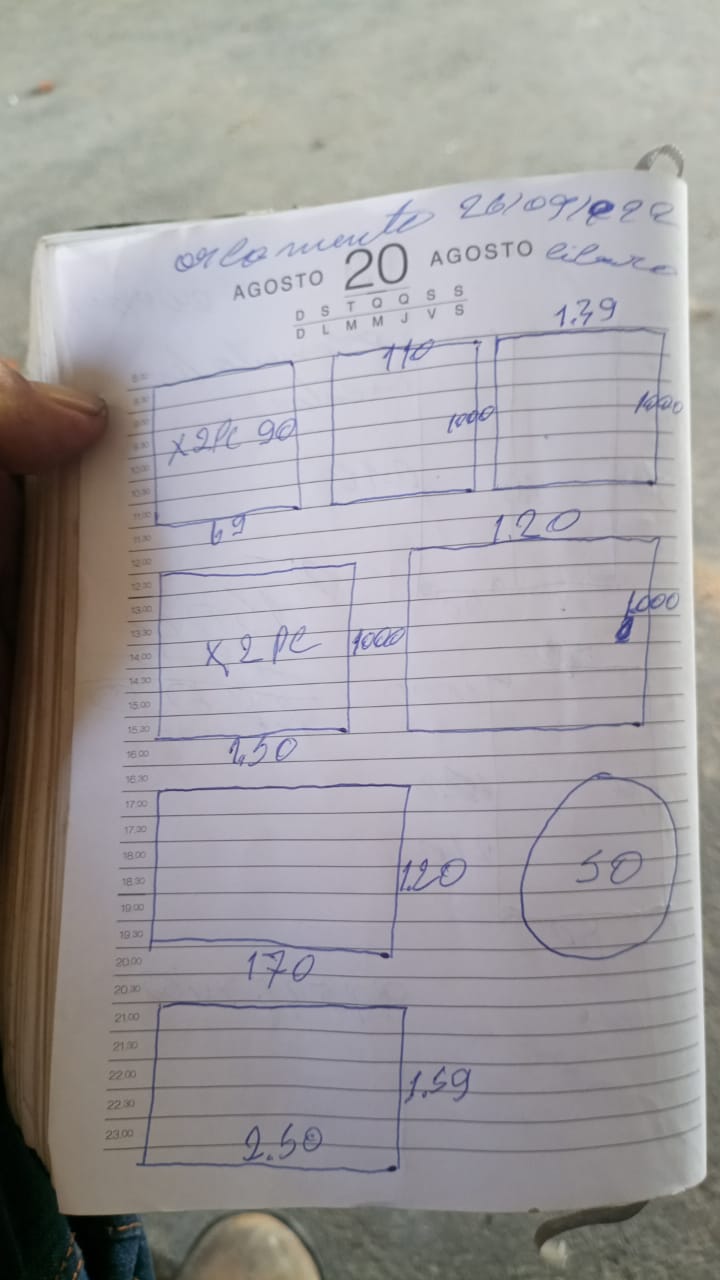 orcamento 26/09/222
AGOSTO 20 AGOSTO
D S T Q Q S S
D L M M J V S
1.39
110
1000
1000
X2PC 90
69
1.20
1000
X 2 PC
1000
1,50
120
50
170
1.59
2.50
8.00
8.30
9.00
9.30
10.00
10.30
11.00
11.30
12.00
12.30
13.00
13.30
14.00
14.30
15.00
15.30
16.00
16.30
17.00
17.30
18.00
18.30
19.00
19.30
20.00
20.30
21.00
21.30
22.00
22.30
23.00